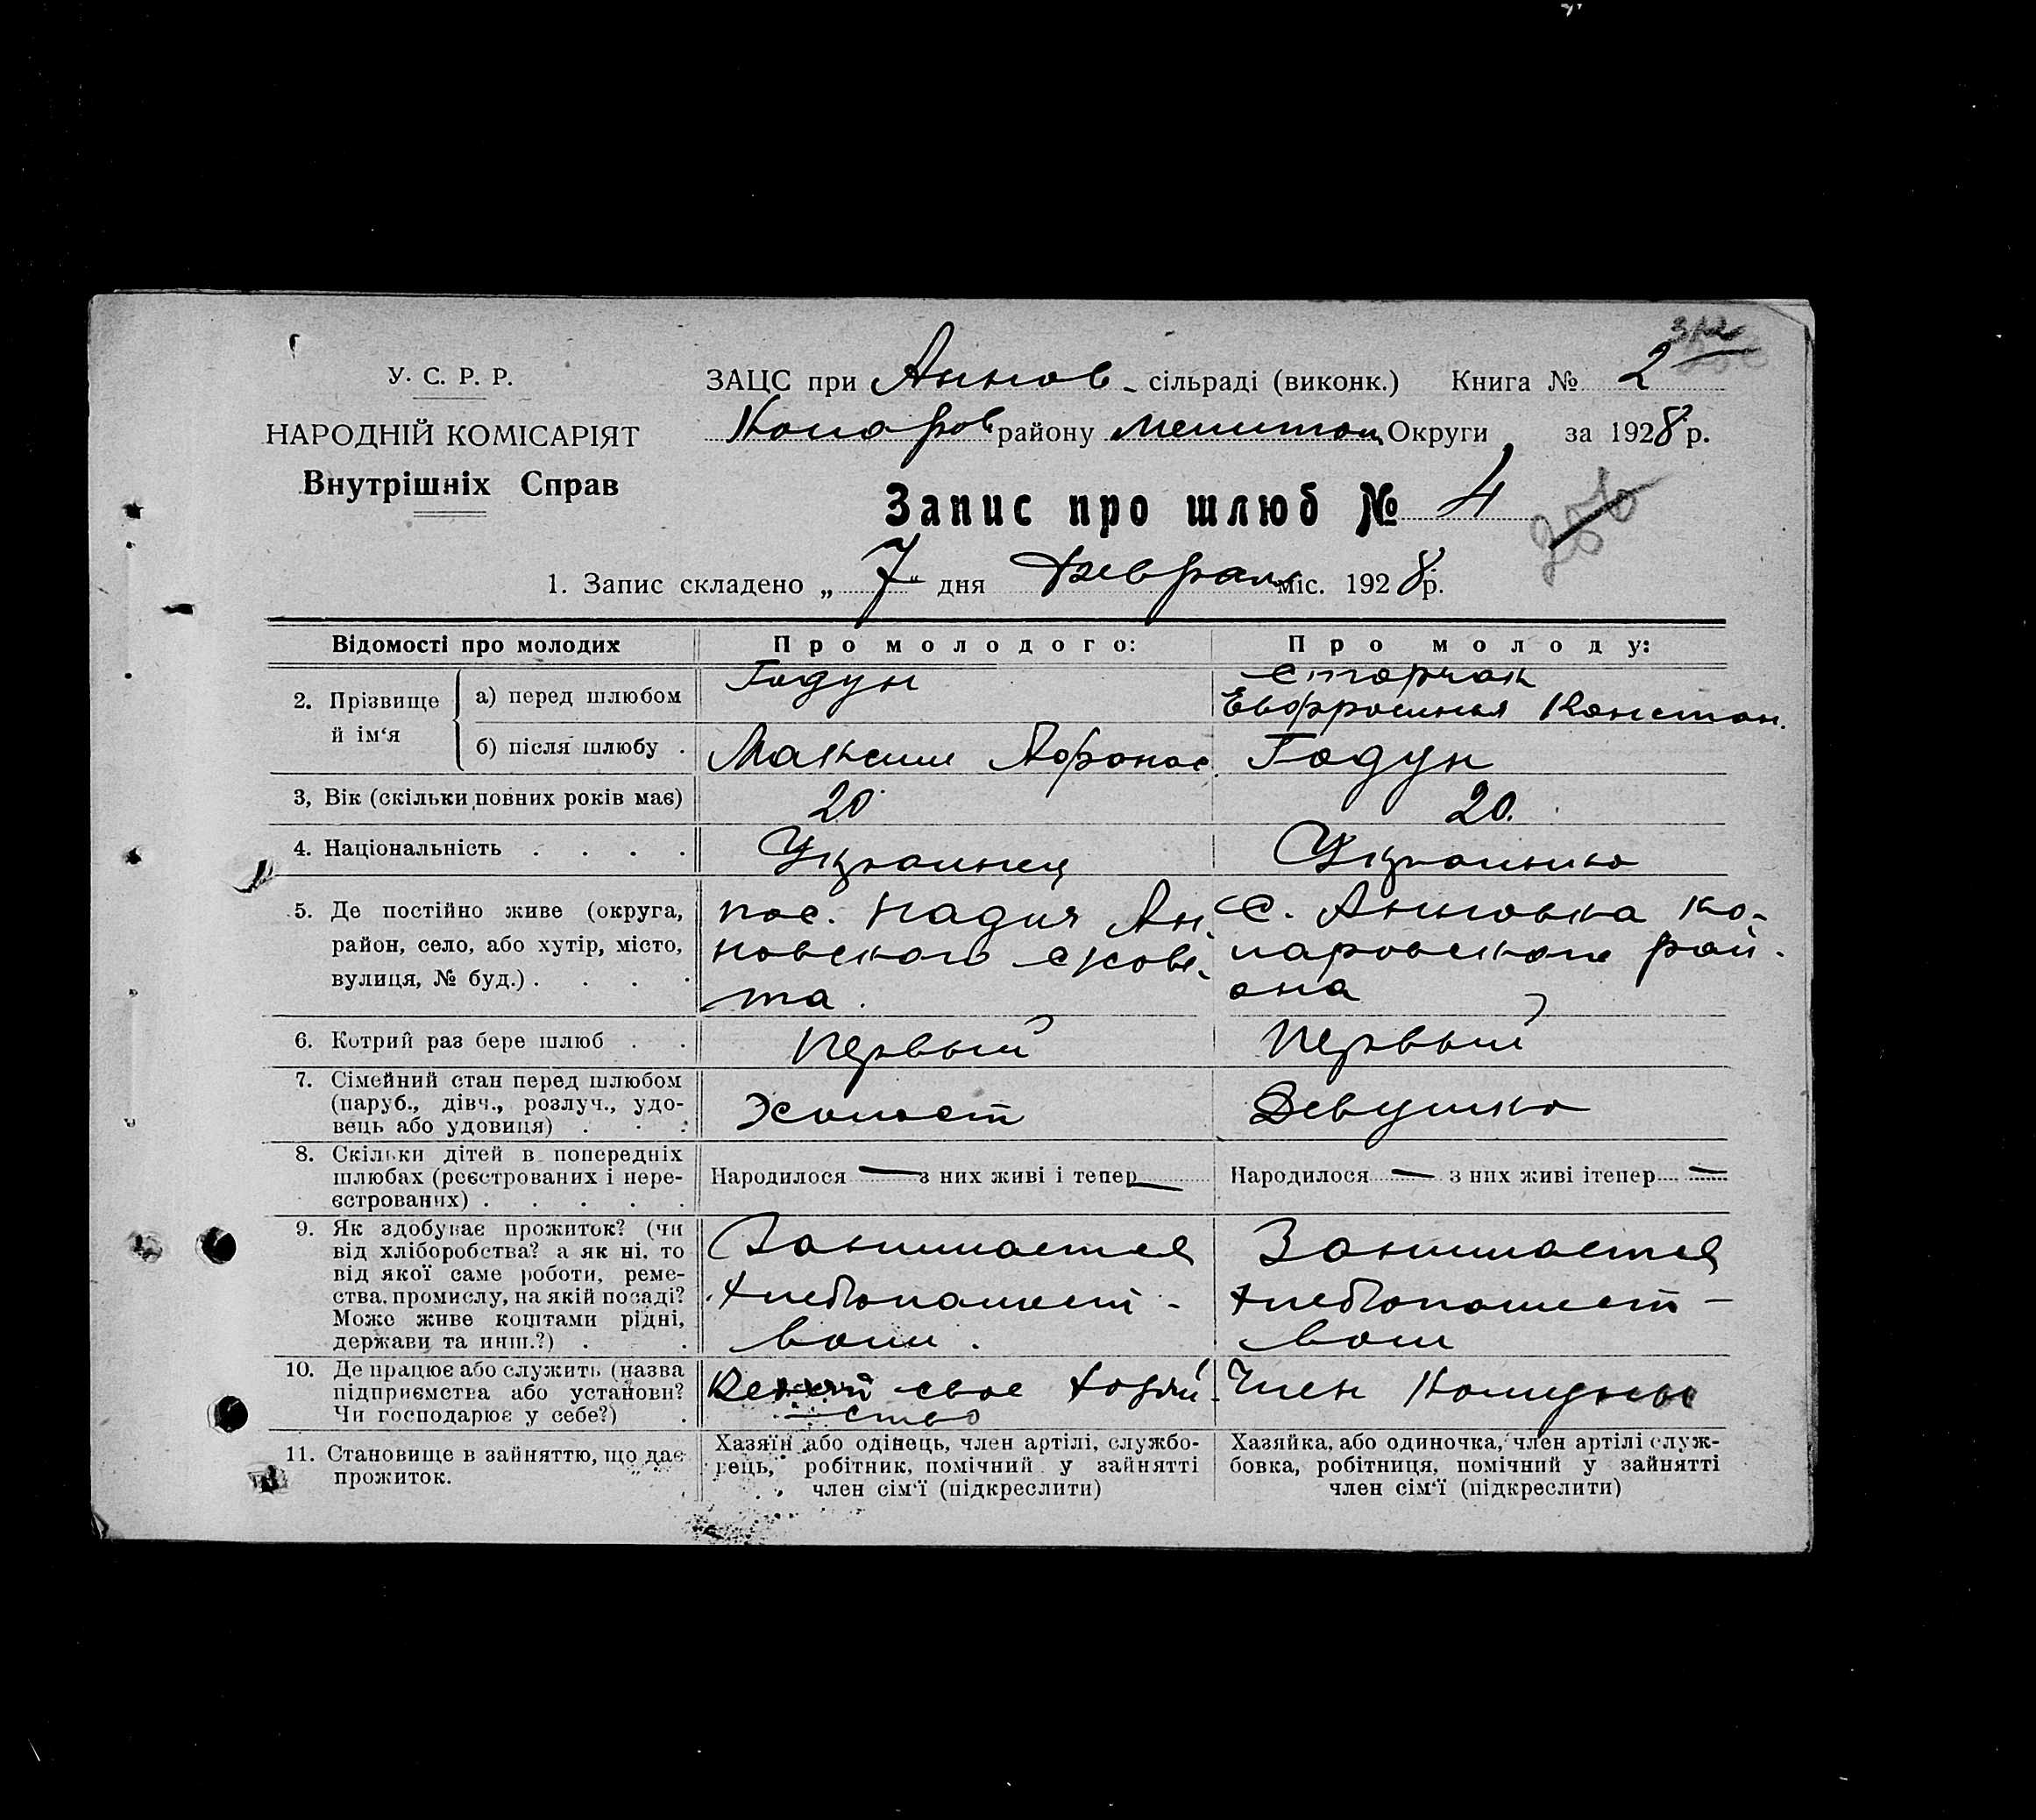 У. С. Р. Р.
НАРОДНІЙ КОМІСАРІЯТ
Внутрішніх Справ
ЗАЦС при Аннов- сільраді (виконк.) Книга № 2
району Округи за 1928 р.
Запис про шлюб № 4
1. Запис складено „ 7 “ дня міс. 1928 р.
Відомості про молодих
Про молодого:
Про молоду:
2. Прізвище й ім‘я
а) перед шлюбом
Годун
Сторчак
Евфросинья Констан.
б) після шлюбу .
Максим Афонас.
Годун
3, Вік (скільки повних років має)
20
20.
4. Національність . . . .
Украинец
Украинка
5. Де постійно живе (округа,
район, село, або хутір, місто,
вулиця, № буд.) . . . .
пос. Надия Ан-
новского с/сове-
та.
С. Анновка Ко-
ларовского рай-
она
6. Котрий раз бере шлюб . .
Первый
Первый
7. Сімейний стан перед шлюбом
(паруб., дівч., розлуч., удо-
вець або удовиця) . . .
Холост
Девушка
8. Скільки дітей в попередніх
шлюбах (реєстрованих і нере-
єстрованих) . . . . .
Народилося — з них живі і тепер —
Народилося — з них живі ітепер —
9. Як здобуває прожиток? (чи
від хліборобства? а як ні, то
від якої саме роботи, реме-
ства, промислу, на якій посаді?
Може живе коштами рідні,
держави та инш.?) . .
Занимается
хлебопашест-
вом.
Занимается
хлебопашест-
вом
10. Де працює або служить (назва
підприємства або установи?
Чи господарює у себе?) .
свое хозяй-
ство
Член Комуны
11. Становище в зайняттю, що дає
прожиток.
Хазяїн або одінець, член артілі, службо-
вець, робітник, помічний у зайнятті
член сім‘ї (підкреслити)
Хазяйка, або одиночка, член артілі служ-
бовка, робітниця, помічний у зайнятті
член сім‘ї (підкреслити)